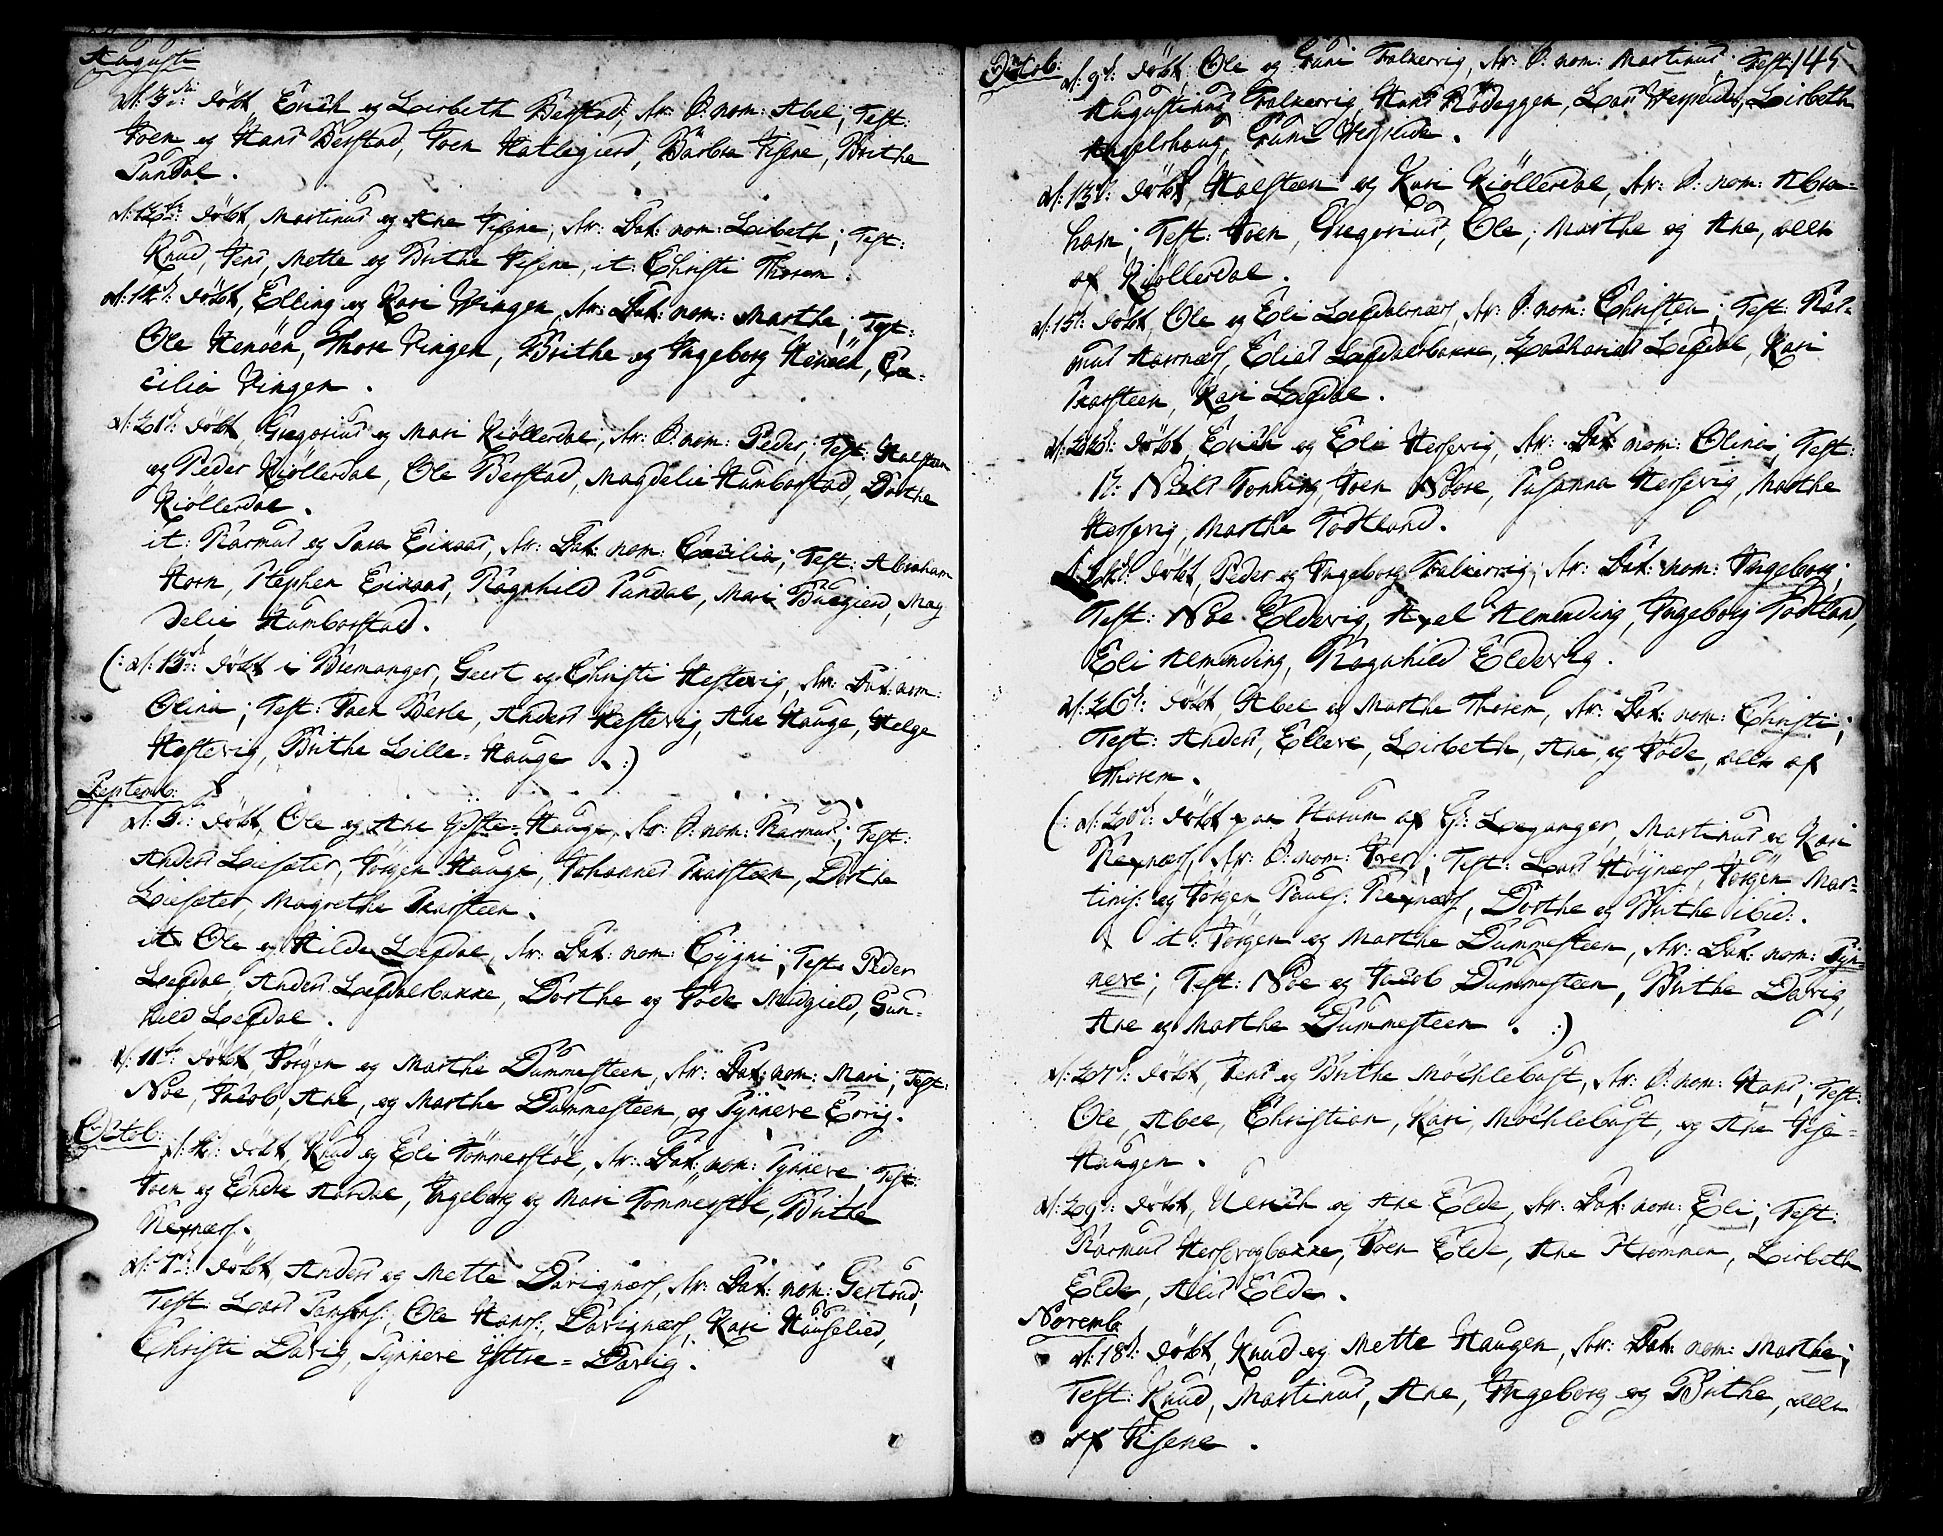 Augusti
d: 3die: døbt, Erich og Lisbeth Berstad, drs: S: nom: Abel; Test:
Joen og Hans Berstad, Joen Hatlegierd, Barbra Visene, Brithe
Sandal.
d: 12te: døbt, Martinus og Ane Visene, drs: Dat: nom: Lisbeth; Test:
Knud, Jens, Mette og Brithe Visene, it: Christi Thorem.
d: 14d: døbt, Elling og Kari Vingen, drs: Dat: nom: Marthe; Test:
Ole Henøen, Thore Vingen, Brithe og Ingeborg Henøen, Cæ-
cilia Vingen.
d: 21d: døbt, Gregorius og Mari Kiøllerdal, drs: S: nom: Peder; Test: Halsteen
og Peder Kiøllerdal, Ole Berstad, Magdeli Humborstad, Dorthe
Kiøllerdal.
it: Rasmus og Sara Eikaas, drs: Dat: nom: Cæcilia; Test: Abraham
Horn, Stephen Eikaas, Ragnhild Sandal, Mari Buegierd, Mag
deli Humborstad.
(: d: 15d: døbt i Bremanger, Geert og Christi Hestevig, drs: Dat: nom:
Olina; Test: Joen Berle, Anders Hestevig, Ane Hauge, Helge
Hestevig, Brithe Lille-Hauge . :)
Septemb:
d: 5d: døbt, Ole og Ane Ydste-Hauge, drs: S: nom: Rasmus; Test:
Anders Liesæter, Jørgen Hauge, Johannes Skarsteen, Dorthe
Liesæter, Magrethe Skarsteen.
it: Ole og Hilde Lefdal, drs: Dat: nom: Sygni; Test: Peder
Lefdal, Anders Lefdalsbakke, Dorthe og Jode Midgield, Gun-
hild Lefdal.
d: 11te: døbt, Jørgen og Marthe Dummesteen, drs: Dat: nom: Mari; Test:
Noe, Jacob, Ane, og Marthe Dummesteen, og Synneve Ervig.
Octob:
d: 4d: døbt, Knud og Eli Tømmerstøl, drs: Dat: nom: Synneve; Test:
Joen og Endre Aardal, Ingeborg og Mari Tømmerstøl, Brithe
Rexnæss.
d: 7d: døbt, Anders og Mette Davignæss, drs: Dat: nom: Gertrud;
Test: Lars Hanss:, Ole Hanss:, Davignæss, Kari Hauselied,
Christi Davig, Synneve Yttre-Davig.
145
Octob:
d: 9d: døbt, Ole og Guri Falkevig, drs: S: nom: Martinus; Test:
Augustinus Falkevig, Hans Rødeggen, Lars Hesselide, Lisbeth
Angelshaug, Guri Hegrelide.
d: 13d: døbt, Halsteen og Kari Kiøllerdal, drs: S: nom: Abra-
ham; Test: Joen, Gregorius, Ole, Marthe og Ane, alle
af Kiøllerdal.
d: 15d: døbt, Ole og Eli Lefdalsnæss, drs: S: nom: Christen; Test: Ras-
mus Aarnæss, Elias Lefdalsbakke, Zacharias Lefdal, Kari
Skarsteen, Kari Lefdal.
d: 22d: døbt, Erich og Eli Hersevig, drs: Dat: nom: Olina; Test:
Niels Tonning, Joen Noore, Susanna Hersevig, Marthe
Hersevig, Marthe Todtland.
døbt, Peder og Ingeborg Falkevig, drs: Dat: nom: Ingeborg;
Test: Noe Eldevig, Axel Almending, Ingeborg Todtland,
Eli Almending, Ragnhild Eldevig.
d: 26d: døbt, Abel og Marthe Thorem, drs: Dat: nom: Christi;
Test: Anders, Elleve, Lisbeth, Ane, og Jode, alle af
Thorem.
(: d: 20d: døbt paa Husum af Hr: Leganger, Martinus og Kari
Rexnæss, drs: S: nom: Iver; Test: Lars Høynæss, Jørgen Mar-
tins: og Jørgen Pauls: Rexnæss, Dorthe og Brithe ibid:.
it: Jørgen og Marthe Dummesteen, drs: Dat: nom: Syn-
neve; Test: Noe og Jacob Dummesteen, Brithe Davig,
Ane og Marthe Dummesteen . :)
d: 27d: døbt, Jens og Brithe Møchlebust, drs: S: nom: Hans; Test:
Ole, Abel, Christian, Kari, Møchlebust, og Ane Vise-
Haugen.
d: 29d: døbt, Ulrich og Ane Elde, drs: Dat: nom: Eli; Test:
Rasmus Hersevogbakke, Joen Elde, Ane Strømmen, Lisbeth
Elde, Alis Elde.
Novemb:
d: 18d: døbt, Knud og Mette Haugen, drs: Dat: nom: Marthe;
Test: Knud, Martinus, Ane, Ingeborg og Brithe, alle
af Visene.